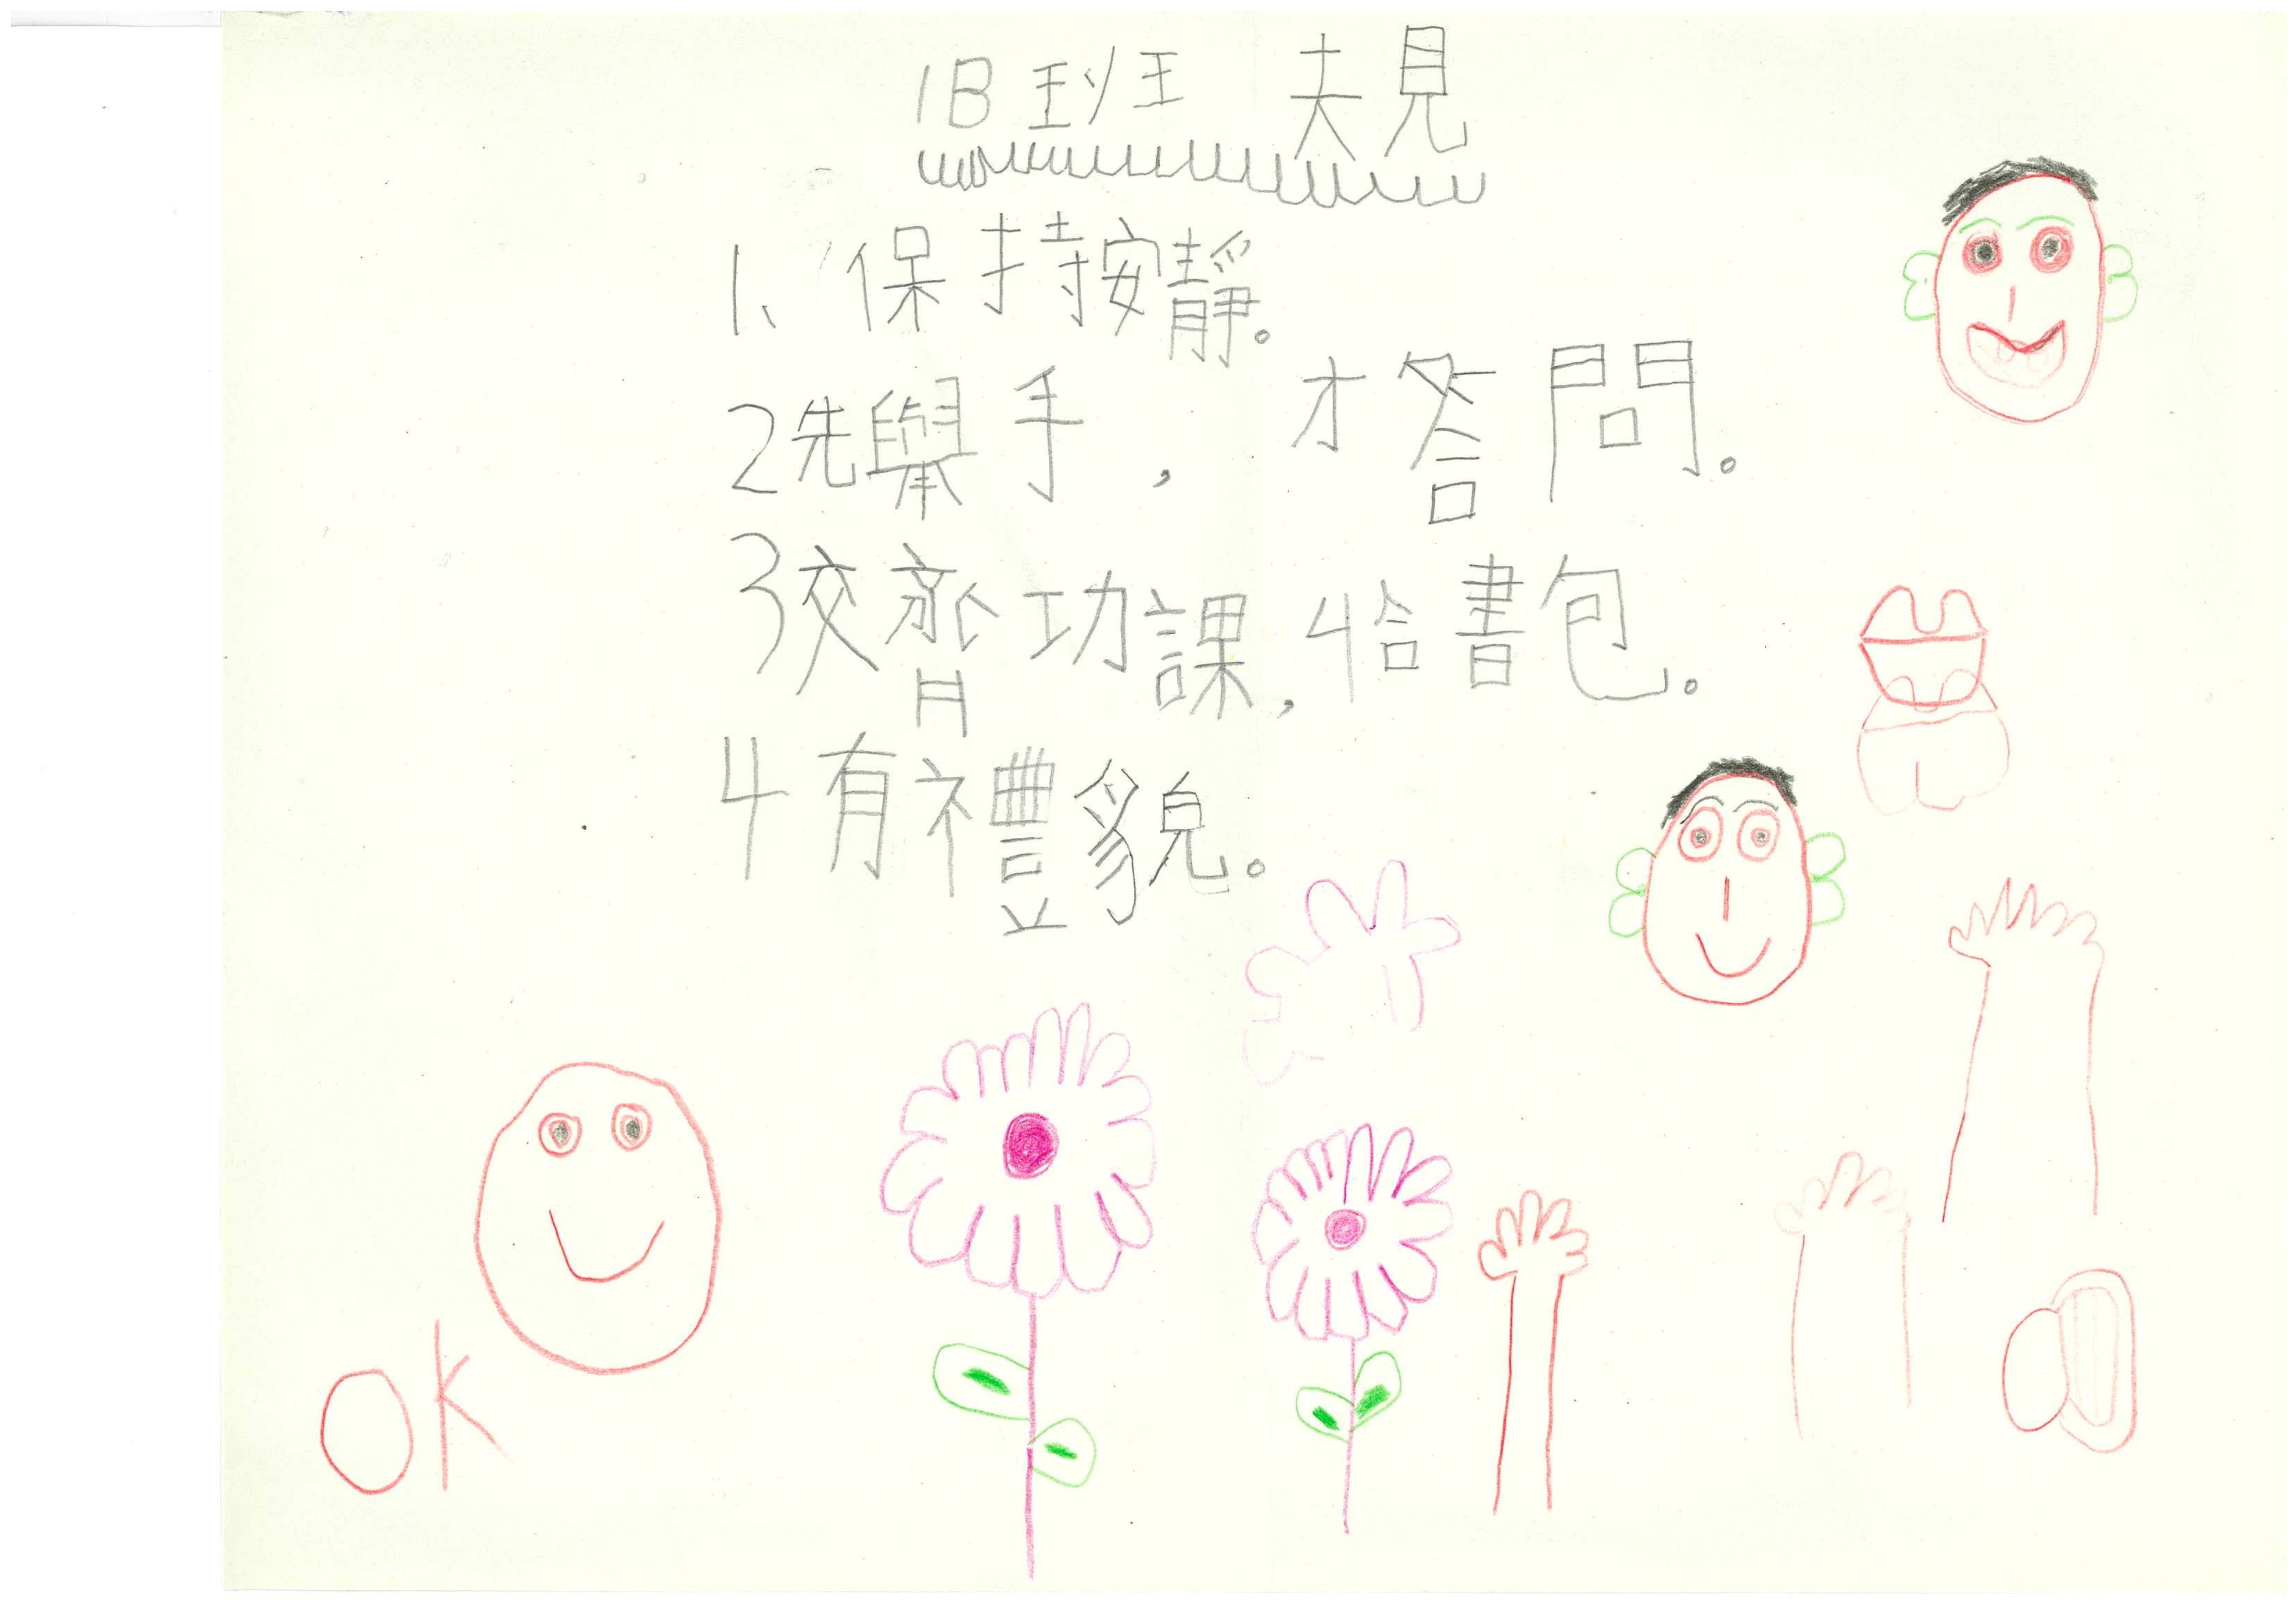 1B班 規
1、保持安靜。
2先舉手，才答問。
3交齊功課，拾書包。
4有禮貌。
OK